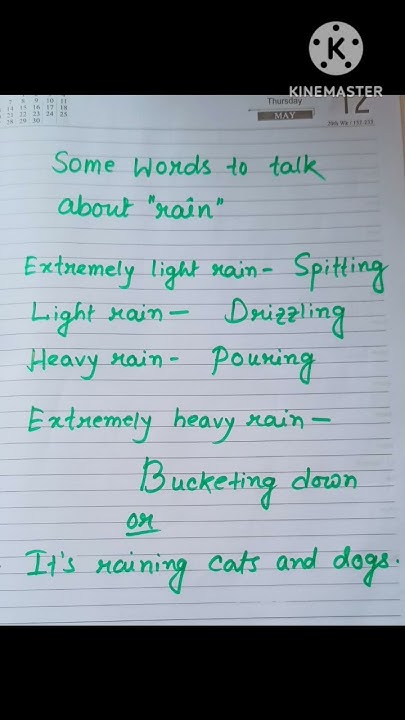 KINEMASTER
7 8 9 10 11
14 15 16 17 18
21 22 23 24 25
28 29 30
Thursday
12
MAY
Some words to talk
about "rain"
Extremely light rain- Spitting
Light rain- Drizzling
Heavy rain- Pouring
Extremely heavy rain-
Bucketing down
or
It's raining cats and dogs.